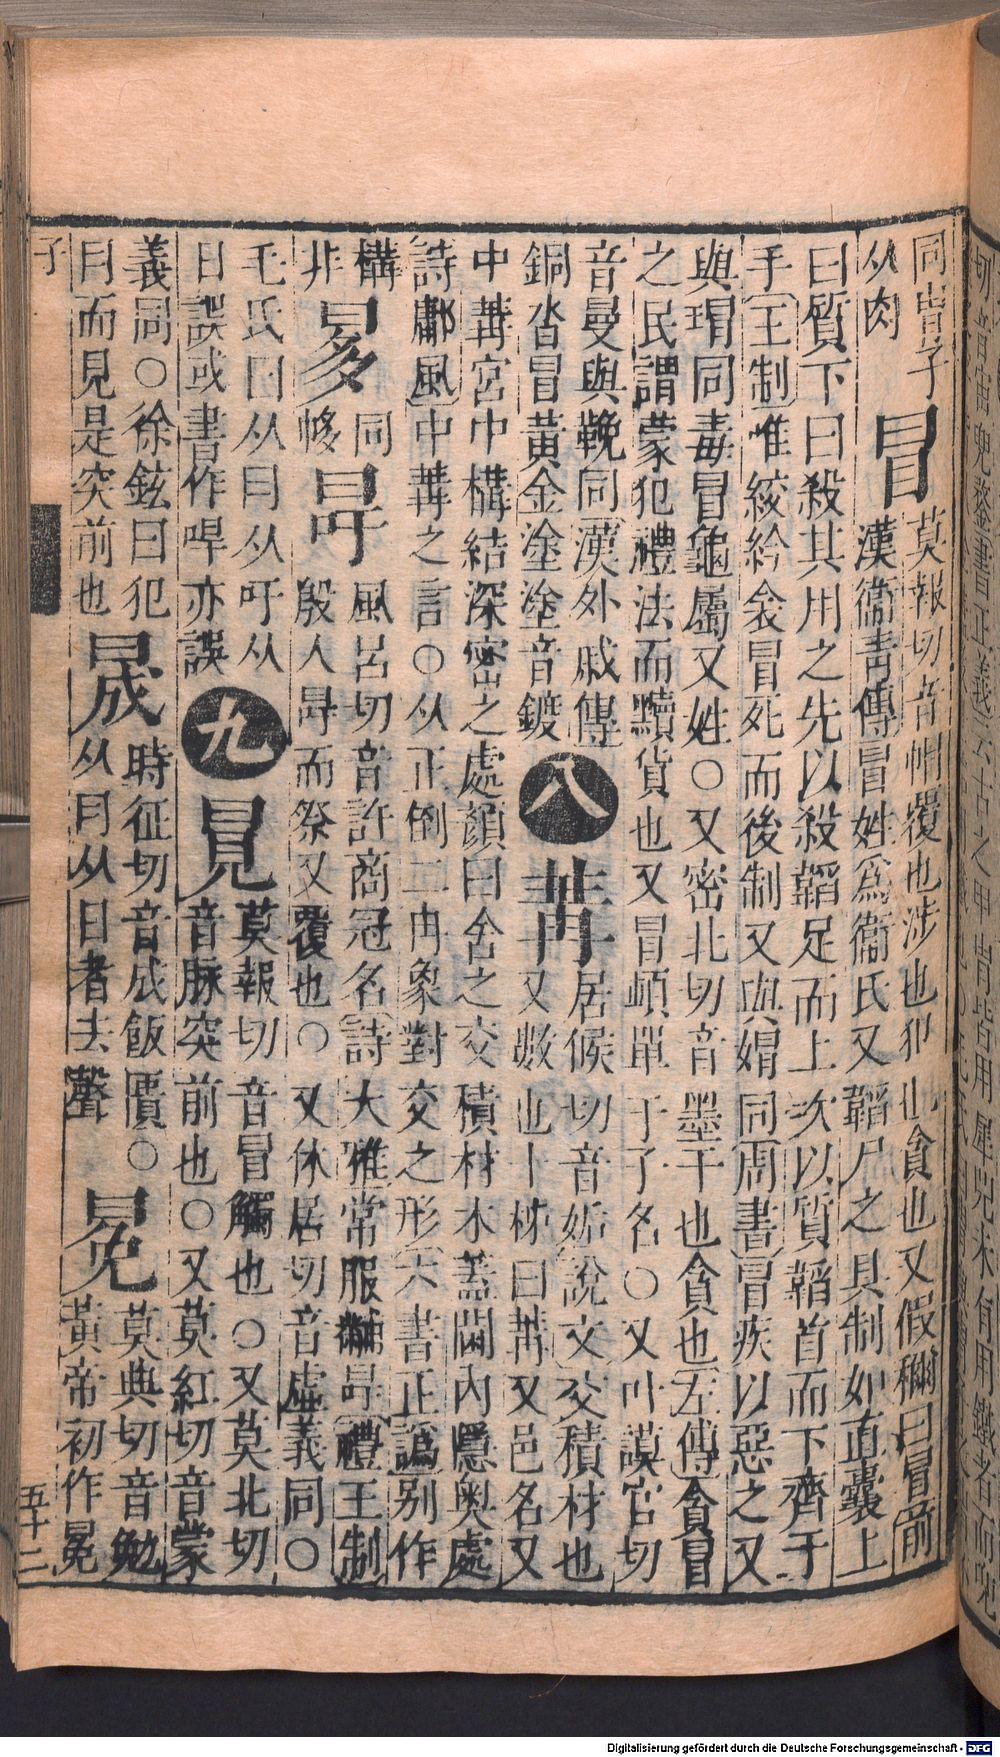 同胄字
从肉
冒
莫報切音帽覆也涉也犯也貪也又假稱曰冒前
漢衞青傳冒姓爲衞氏又韜尸之具制如直囊上
曰質下曰殺其用之先以殺韜足而上次以質韜首而下齊于
手王制唯絞紟衾冒死而後制又與媢同周書冒疾以惡之又
與瑁同毒冒龜屬又姓○又密北切音墨干也貪也左傳貪冒
之民謂蒙犯禮法而黷貨也又冒頓單于子名○又叶謨官切
音曼與鞔同漢外戚傳
銅沓冒黃金塗塗音鍍
八
冓
居候切音姤說文交積材也
又數也十秭曰冓又邑名又
中冓宮中構結深密之處顏曰舍之交積材木蓋閫內隱奧處
詩鄘風中冓之言○从正倒二冉象對交之形六書正譌别作
構
非
㝃
同
㡋
冔
風呂切音許商冠名詩大雅常服黼冔禮王制
殷人冔而祭又覆也○又休居切音虛義同○
毛氏曰从冃从吁从
日誤或書作㖸亦誤
九
冒
莫報切音冒觸也○又莫北切
音脉突前也○又莫紅切音蒙
義同○徐鉉曰犯
冃而見是突前也
晟
時征切音成飯匱○
从冃从日者去聲
冕
莫典切音勉
黃帝初作冕
子
五十二
Digitalisierung gefördert durch die Deutsche Forschungsgemeinschaft - DFG